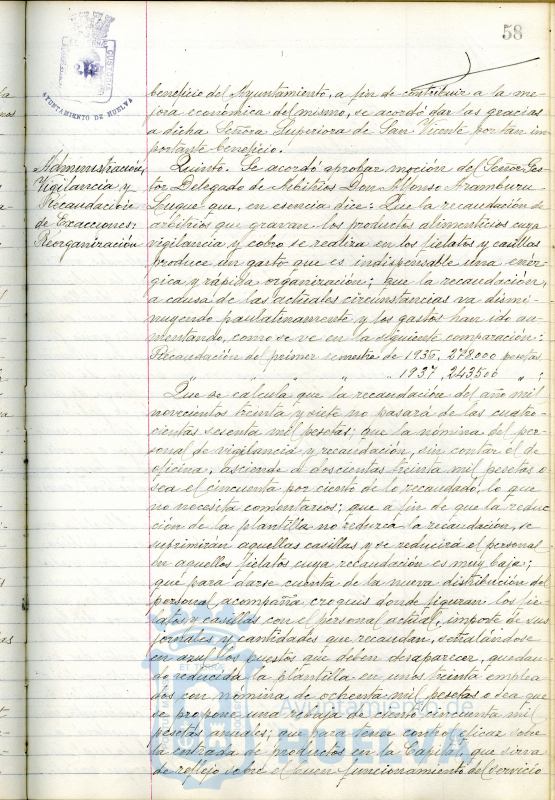 58
AYUNTAMIENTO DE HUELVA
beneficio del Ayuntamiento, a fin de contribuir a la me-
jora económica del mismo, se acordó dar las gracias
a dicha Señora Superiora de San Vicente por tan im-
portante beneficio.
Administración,
Vigilancia y
Recaudación
de Exacciones.
Reorganización
Quinto. Se acordó aprobar moción del Señor Ges-
tor Delegado de Arbitrios Don Alfonso Aramburu
Luque que, en esencia dice: Que la recaudación de
arbitrios que gravan los productos alimenticios cuya
vigilancia y cobro se realiza en los fielatos y casillas
produce un gasto que es indispensable una enér-
gica y rápida organización; que la recaudación,
a causa de las actuales circunstancias va dismi-
nuyendo paulatinamente y los gastos han ido au-
mentando, como se ve en la siguiente comparación:
Recaudación del primer semestre de 1936, 278.000 pesetas
" " " " " 1937, 243500 " ;
Que se calcula que la recaudación del año mil
novecientos treinta y siete no pasará de las cuatro-
cientas sesenta mil pesetas; que la nómina del per-
sonal de vigilancia y recaudación, sin contar el de
oficina, asciende a doscientas treinta mil pesetas o
sea el cincuenta por ciento de lo recaudado, lo que
no necesita comentarios; que a fin de que la reduc-
ción de la plantilla no reduzca la recaudación, se
suprimirán aquellas casillas y se reducirá el personal
en aquellos fielatos cuya recaudación es muy baja;
que para darse cuenta de la nueva distribución del
personal acompaña croquis donde figuran los fie-
latos y casillas con el personal actual, importe de sus
jornales y cantidades que recaudan, señalándose
en azul los puestos que deben desaparecer, quedan-
do reducida la plantilla en unos treinta emplea-
dos con nómina de ochenta mil pesetas o sea que
se propone una rebaja de ciento cincuenta mil
pesetas anuales; que para tener control eficaz sobre
la entrada de productos en la Capital, que sirva
de reflejo sobre el buen funcionamiento del servicio
Ayuntamiento de
HUELVA